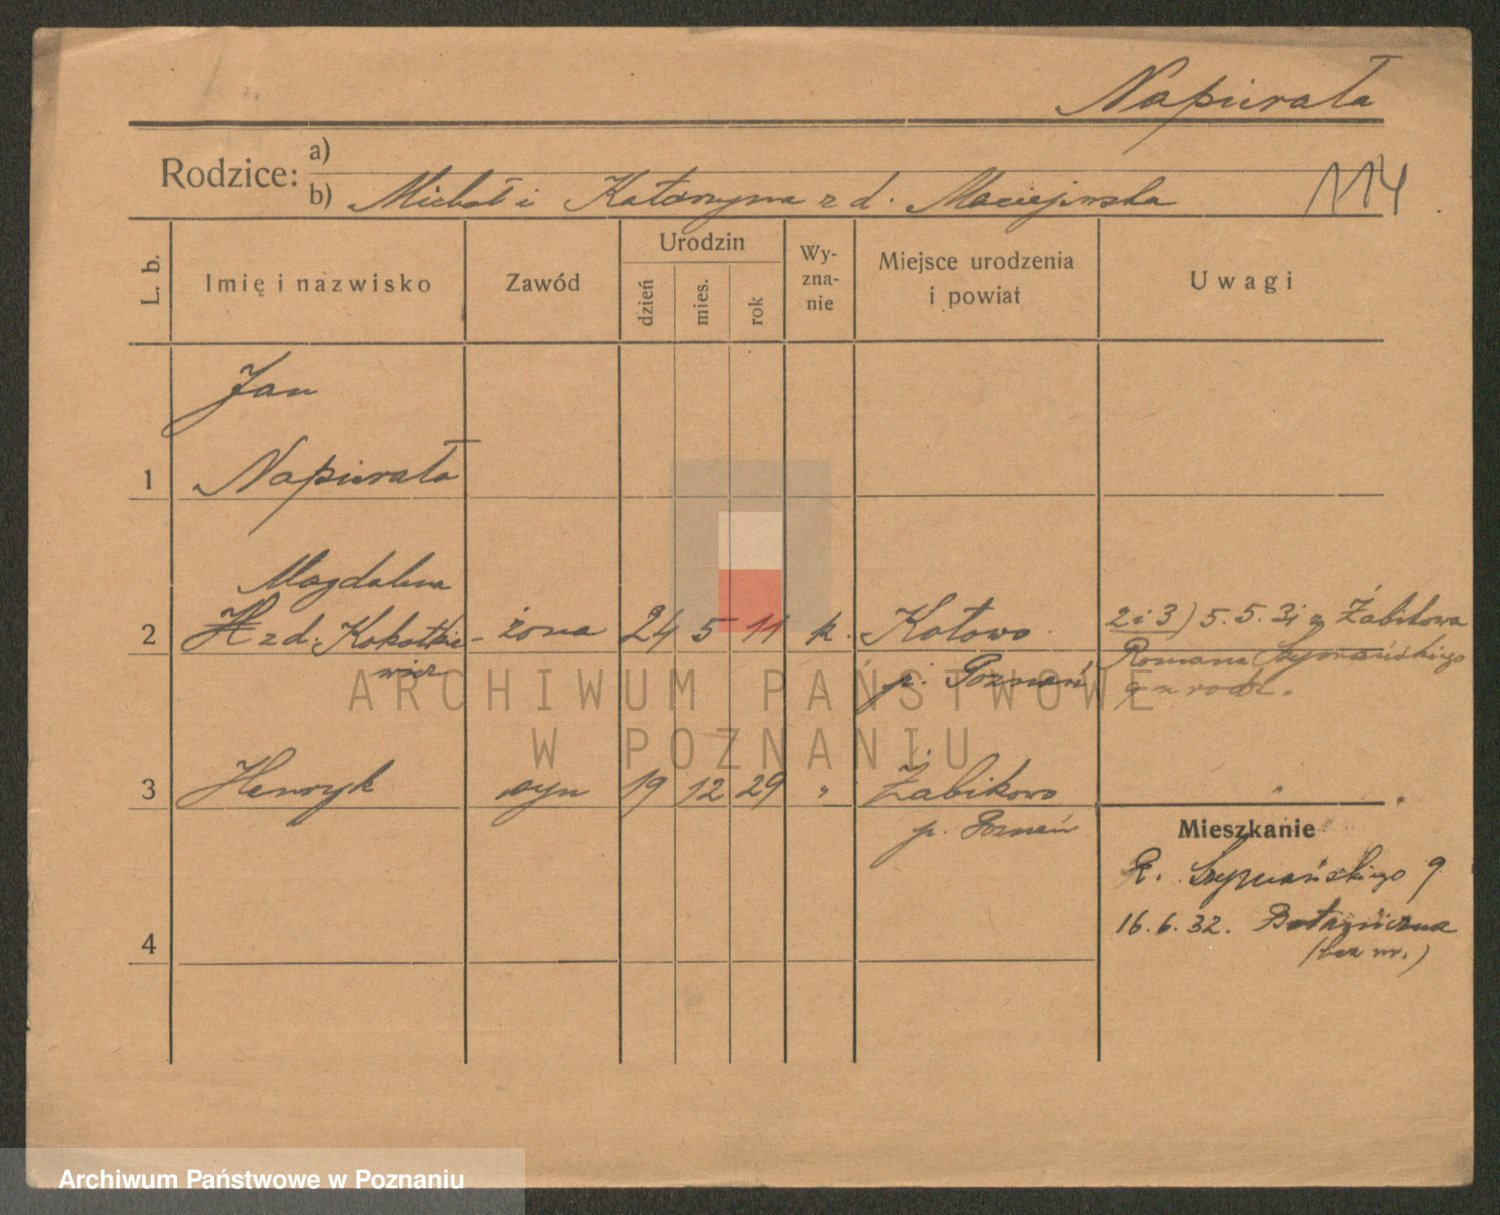 Napierała
Rodzice: a)
b) Michał i Katarzyna z d. Maciejewska
114
L. b.
Imię i nazwisko
Zawód
Urodzin
dzień
mies.
rok
Wy-
zna-
nie
Miejsce urodzenia
i powiat
Uwagi
Jan
1 Napierała
Magdalena
2 z d. Kokotkie- żona 24 5 11 k. Kotowo
wicz p. Poznań
2 i 3) 5.5.31 z Żabikowa
Romana Szymańskiego
9 rodz.
3 Henryk syn 19 12 29 " Żabikowo
p. Poznań
"
Mieszkanie
R. Szymańskiego 9
16.6.32. Botaniczna
(bez nr.)
4
ARCHIWUM PAŃSTWOWE
W POZNANIU
Archiwum Państwowe w Poznaniu